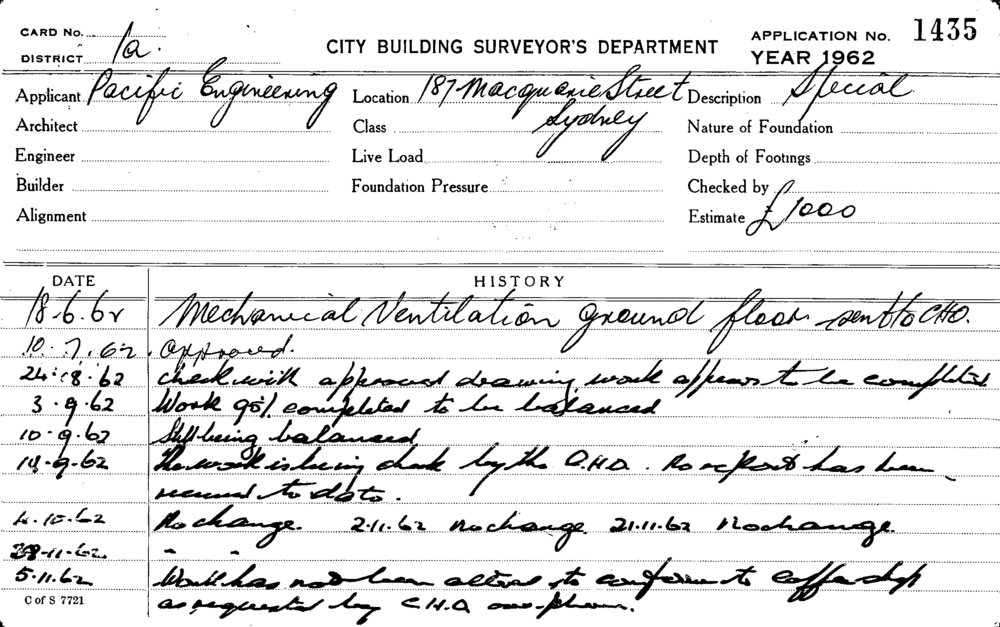 CARD No. 1a.
DISTRICT
CITY BUILDING SURVEYOR'S DEPARTMENT
APPLICATION No. 1435
YEAR 1962
Applicant Pacific Engineering
Location 187 Macquarie Street
Sydney
Description Special
Architect
Class
Nature of Foundation
Engineer
Live Load
Depth of Footings
Builder
Foundation Pressure
Checked by
Alignment
Estimate £1000
DATE HISTORY
18.6.62 Mechanical Ventilation ground floor sent to CHO.
10.7.62. approved.
24.8.62 check with approved drawing work appears to be completed
3.9.62 Work 95% completed to be balanced
10.9.62 Still being balanced
14.9.62 The work is being check by the C.H.O. No report has been
received to date.
4.10.62 No change. 2.11.62 No change. 21.11.62 No change.
28.11.62. " "
5.11.62 Work has not been altered to conform to
as requested by C.H.O.
C of S 7721